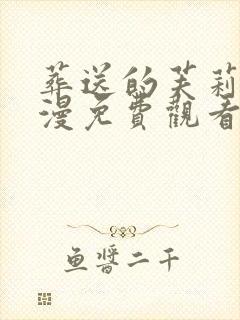 葬送的芙莉
漫免費觀看
魚醬二千